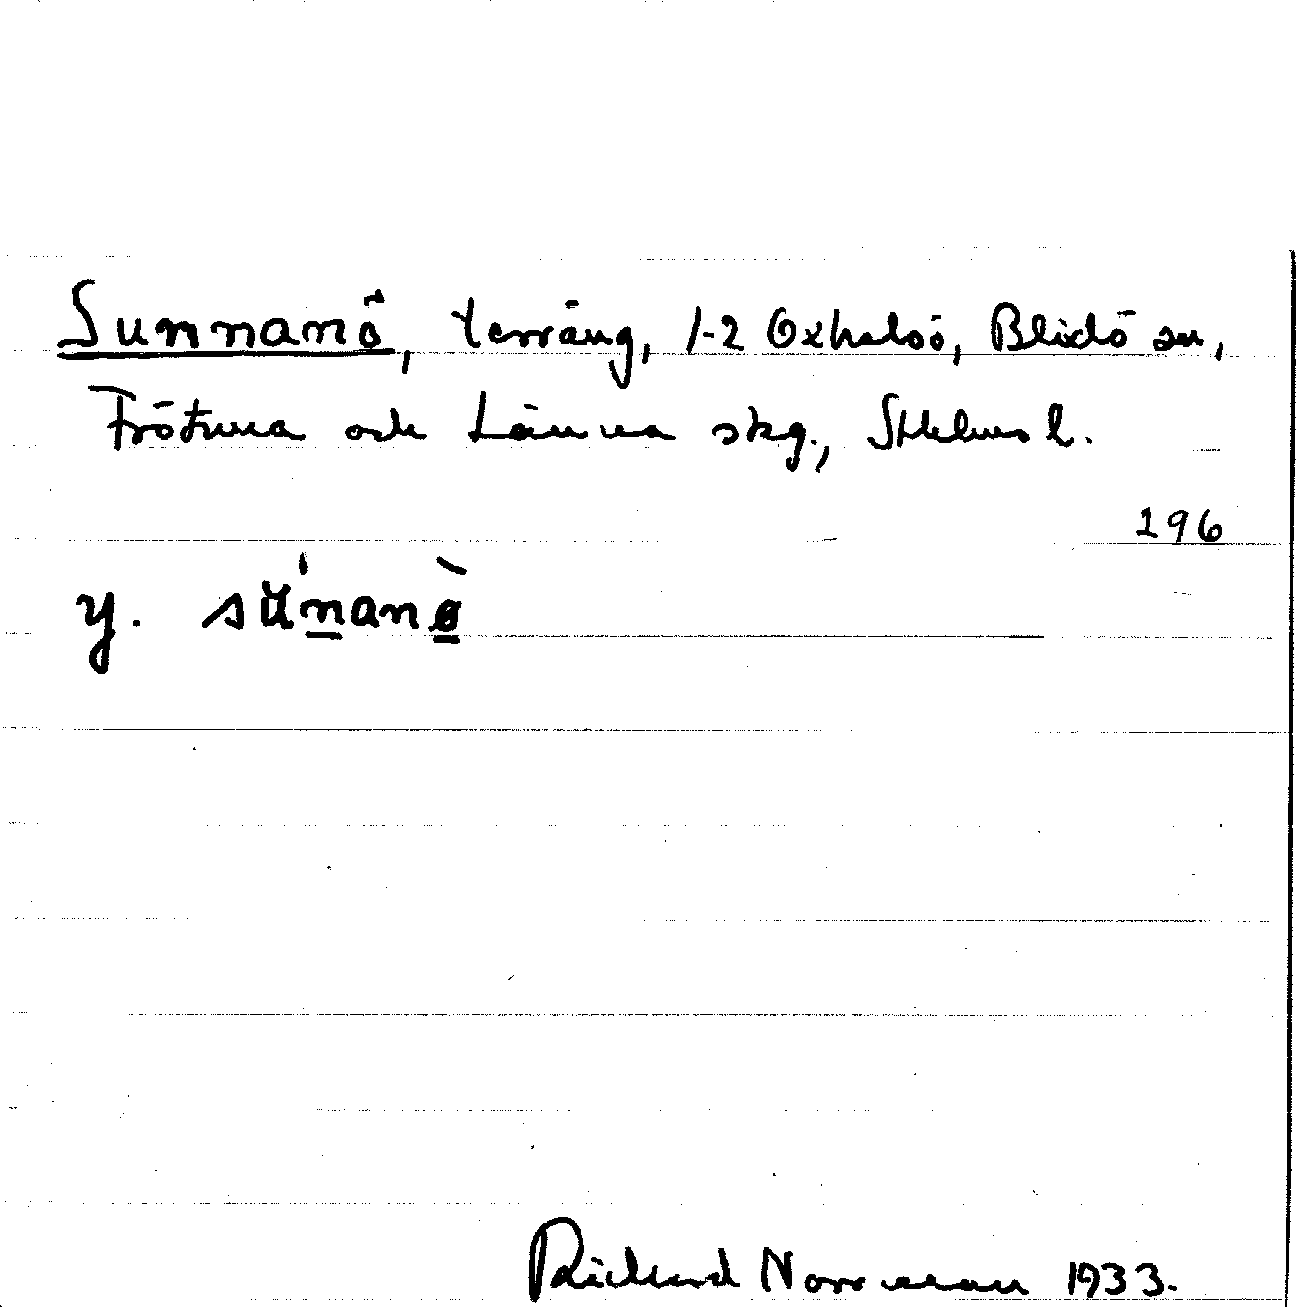 Sunnanö, terräng, 1-2 Oxhalsö, Blidö sn,
Frötuna och Länna skg., Sthlms l.
196
y. sŭ'nanø̀
Richard Norrman 1933.